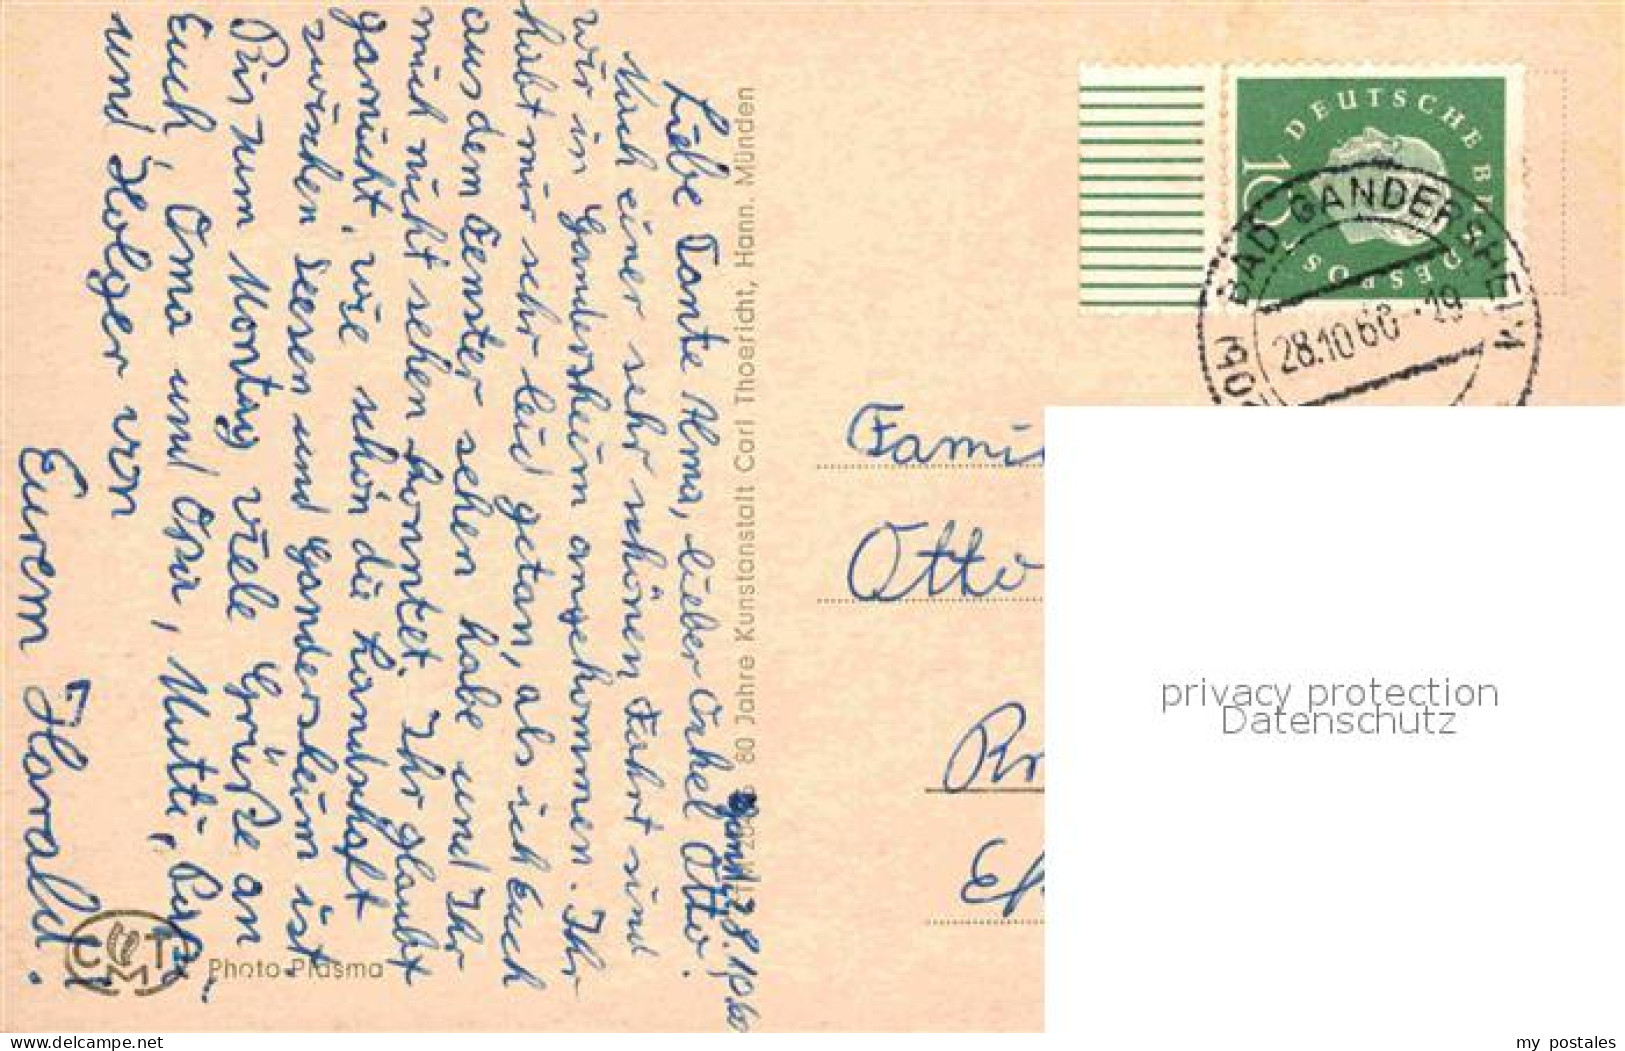 Gand. 28.10.60
Liebe Tante Alma, lieber Onkel Otto.
Nach einer sehr schönen Fahrt sind
wir in Gandersheim angekommen. Ihr
habt mir sehr leid getan, als ich Euch
aus dem Fenster sehen habe und Ihr
mich nicht sehen konntet. Ihr glaubt
garnicht, wie schön die Landschaft
zwischen Seesen und Gandersheim ist.
Bis zum Montag viele Grüße an
Euch, Oma und Opa, Mutti, Papi
und Holger von
Eurem Harald.
80 Jahre Kunstanstalt Carl Thoericht, Hann. Münden
CTHM
Photo-Plasma
DEUTSCHE BUNDESPOST
10
BAD GANDERSHEIM
28.10.60.-19
Fami
Otto
privacy protection
Datenschutz
my_postales
www.delcampe.net